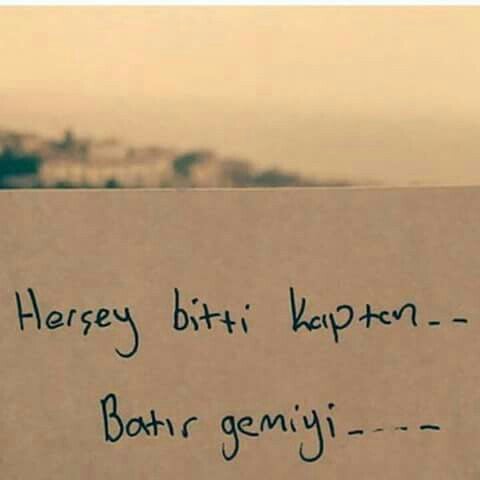 Herşey bitti kaptan--
Batır gemiyi----